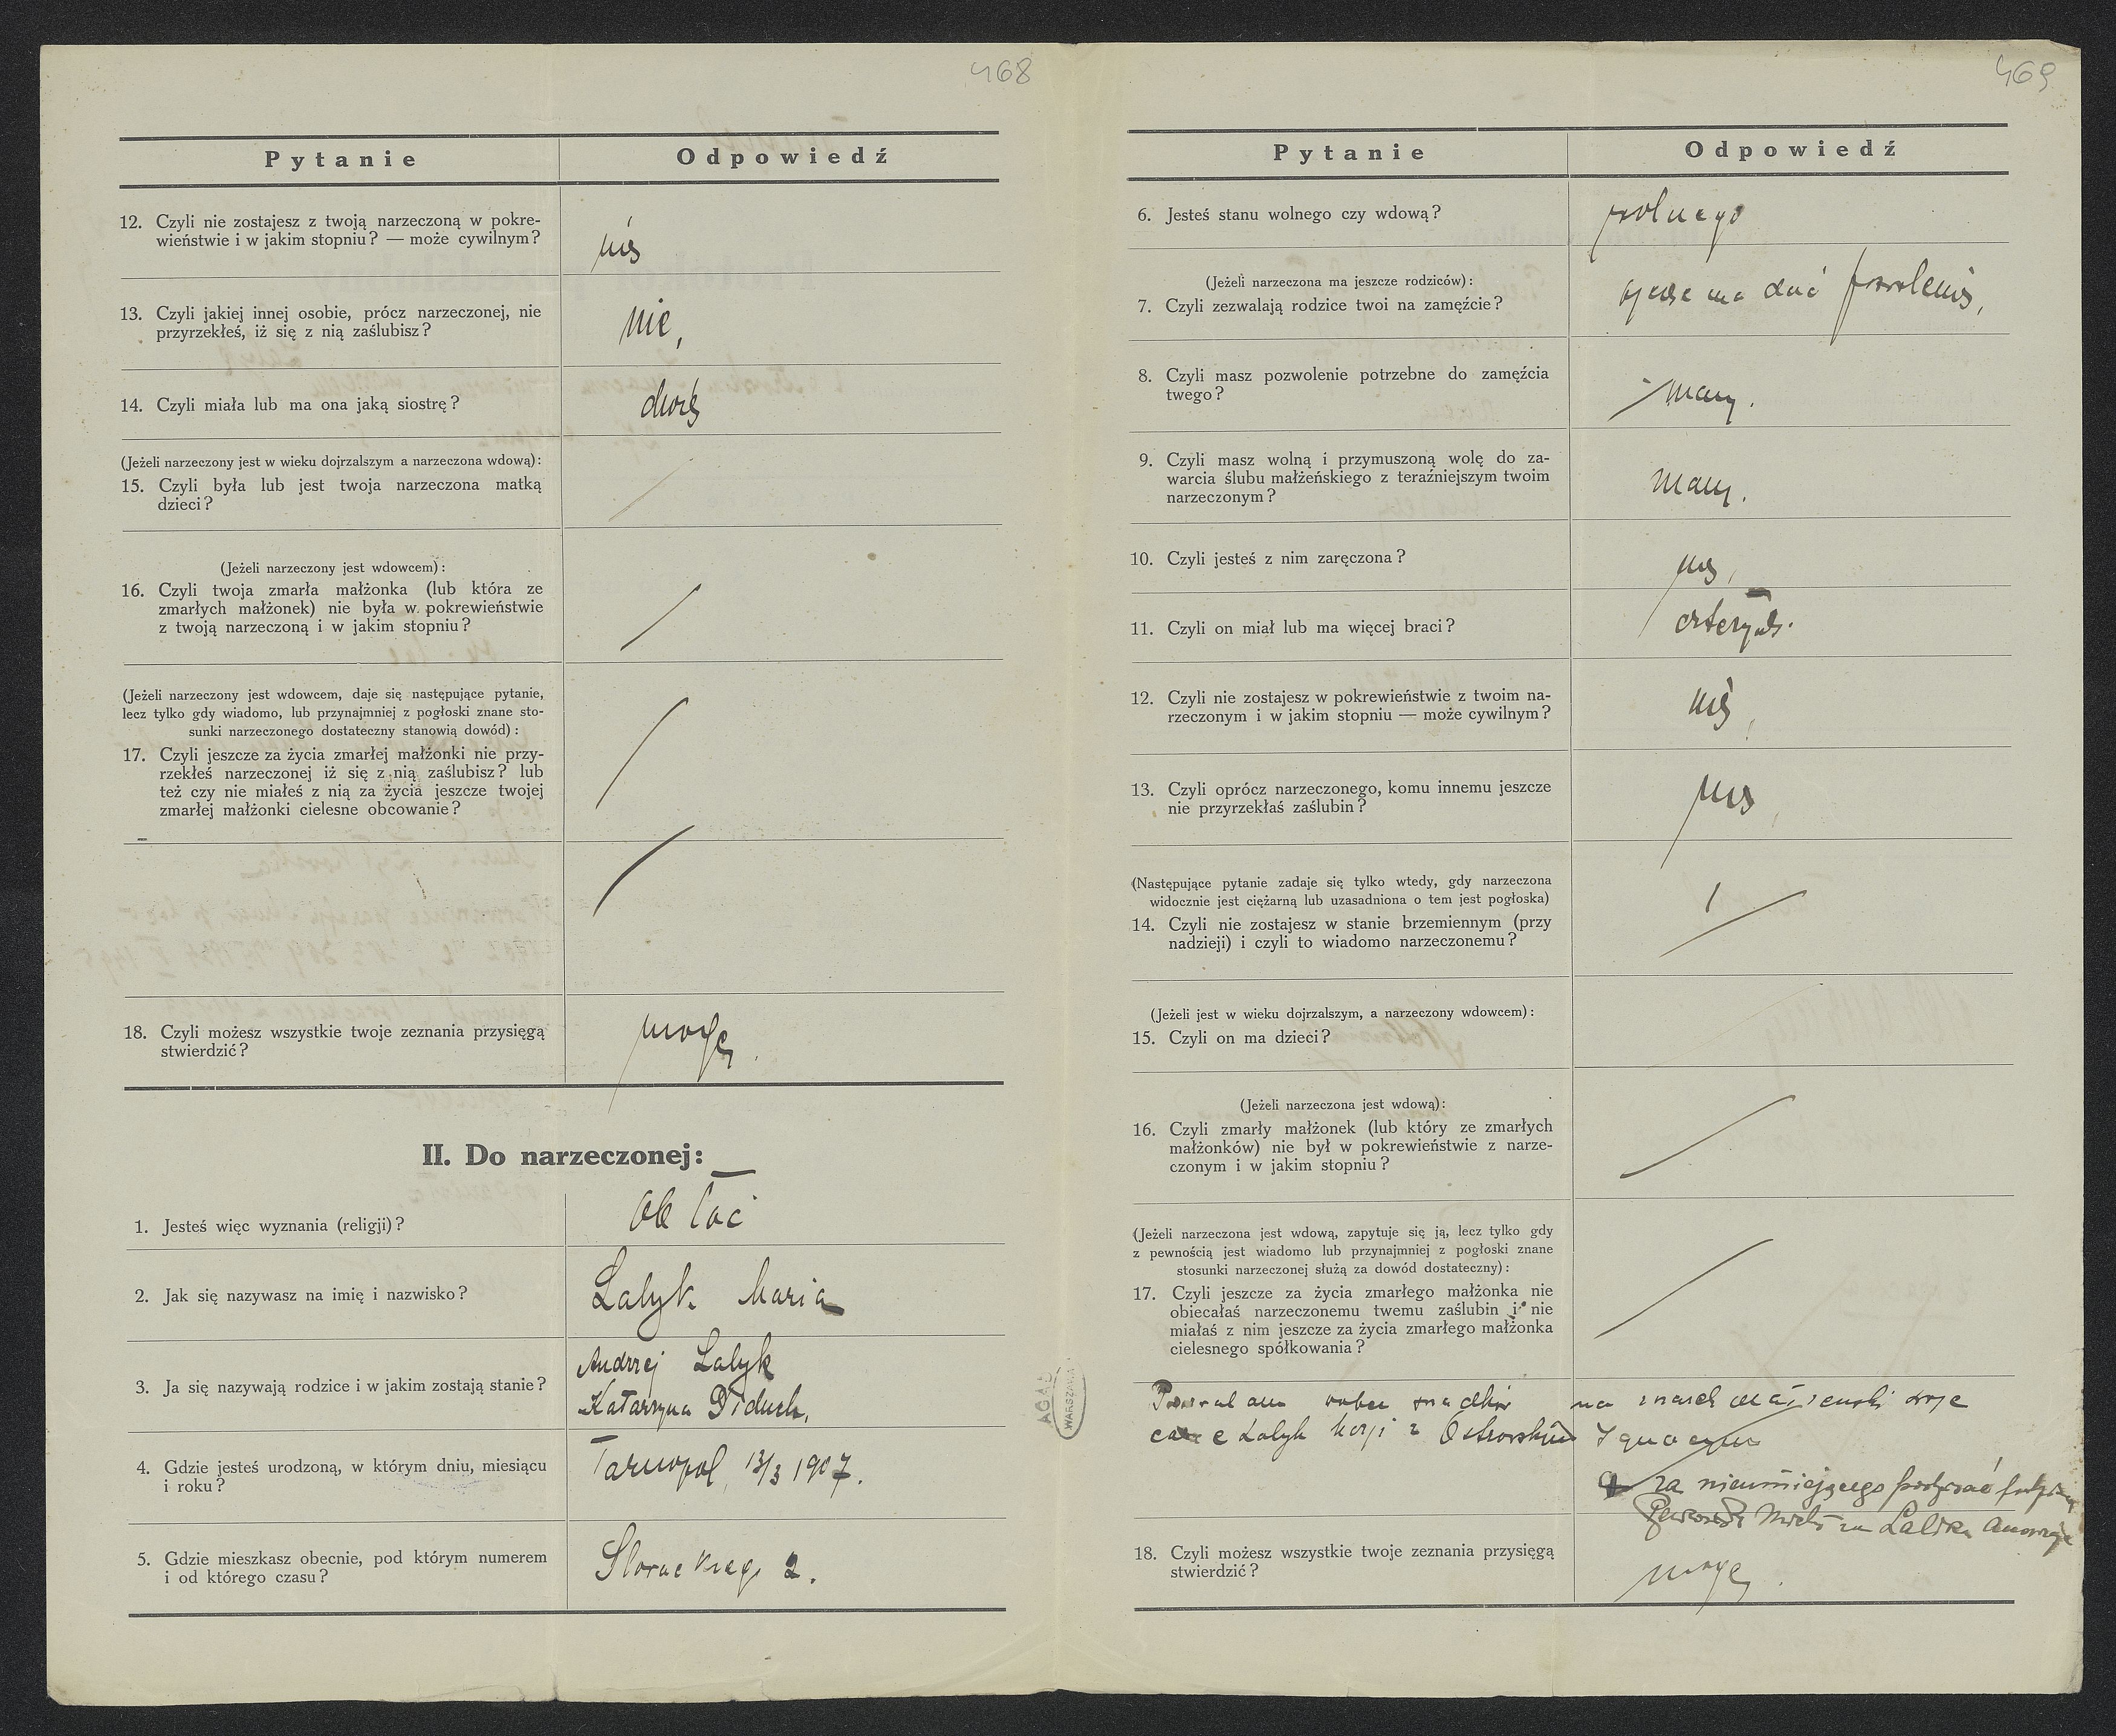 468
Pytanie Odpowiedź
12. Czyli nie zostajesz z twoją narzeczoną w pokre-
wieństwie i w jakim stopniu? — może cywilnym?
nie
13. Czyli jakiej innej osobie, prócz narzeczonej, nie
przyrzekłeś, iż się z nią zaślubisz?
nie,
14. Czyli miała lub ma ona jaką siostrę?
dwie
(Jeżeli narzeczony jest w wieku dojrzalszym a narzeczona wdową):
15. Czyli była lub jest twoja narzeczona matką
dzieci?
(Jeżeli narzeczony jest wdowcem):
16. Czyli twoja zmarła małżonka (lub która ze
zmarłych małżonek) nie była w pokrewieństwie
z twoją narzeczoną i w jakim stopniu?
(Jeżeli narzeczony jest wdowcem, daje się następujące pytanie,
lecz tylko gdy wiadomo, lub przynajmniej z pogłoski znane sto-
sunki narzeczonego dostateczny stanowią dowód):
17. Czyli jeszcze za życia zmarłej małżonki nie przy-
rzekłeś narzeczonej iż się z nią zaślubisz? lub
też czy nie miałeś z nią za życia jeszcze twojej
zmarłej małżonki cielesne obcowanie?
18. Czyli możesz wszystkie twoje zeznania przysięgą
stwierdzić?
mogę
II. Do narzeczonej:
1. Jesteś więc wyznania (religji)?
ob łać
2. Jak się nazywasz na imię i nazwisko?
Łalyk Maria
3. Ja się nazywają rodzice i w jakim zostają stanie?
Andrzej Łalyk
Katarzyna Diduch,
4. Gdzie jesteś urodzoną, w którym dniu, miesiącu
i roku?
Tarnopol, 13/3 1907.
5. Gdzie mieszkasz obecnie, pod którym numerem
i od którego czasu?
Słowackiego 2.
AGAD
WARSZAWA
469
Pytanie Odpowiedź
6. Jesteś stanu wolnego czy wdową?
wolnego
(Jeżeli narzeczona ma jeszcze rodziców):
7. Czyli zezwalają rodzice twoi na zamęźcie?
ma dać pozwolenie,
8. Czyli masz pozwolenie potrzebne do zamęźcia
twego?
mam.
9. Czyli masz wolną i przymuszoną wolę do za-
warcia ślubu małżeńskiego z teraźniejszym twoim
narzeczonym?
mam.
10. Czyli jesteś z nim zaręczona?
nie,
11. Czyli on miał lub ma więcej braci?
czterech.
12. Czyli nie zostajesz w pokrewieństwie z twoim na-
rzeczonym i w jakim stopniu — może cywilnym?
nie,
13. Czyli oprócz narzeczonego, komu innemu jeszcze
nie przyrzekłaś zaślubin?
nie,
(Następujące pytanie zadaje się tylko wtedy, gdy narzeczona
widocznie jest ciężarną lub uzasadniona o tem jest pogłoska)
14. Czyli nie zostajesz w stanie brzemiennym (przy
nadzieji) i czyli to wiadomo narzeczonemu?
(Jeżeli jest w wieku dojrzalszym, a narzeczony wdowcem):
15. Czyli on ma dzieci?
(Jeżeli narzeczona jest wdową):
16. Czyli zmarły małżonek (lub który ze zmarłych
małżonków) nie był w pokrewieństwie z narze-
czonym i w jakim stopniu?
(Jeżeli narzeczona jest wdową, zapytuje się ją, lecz tylko gdy
z pewnością jest wiadomo lub przynajmniej z pogłoski znane
stosunki narzeczonej służą za dowód dostateczny):
17. Czyli jeszcze za życia zmarłego małżonka nie
obiecałaś narzeczonemu twemu zaślubin i nie
miałaś z nim jeszcze za życia zmarłego małżonka
cielesnego spółkowania?
Pozwalam wobec świadków na związek małżeński
Łalyk Marji z Ostrowskim Ignacym
za nieumiejącego podpisać
18. Czyli możesz wszystkie twoje zeznania przysięgą
stwierdzić?
mogę.